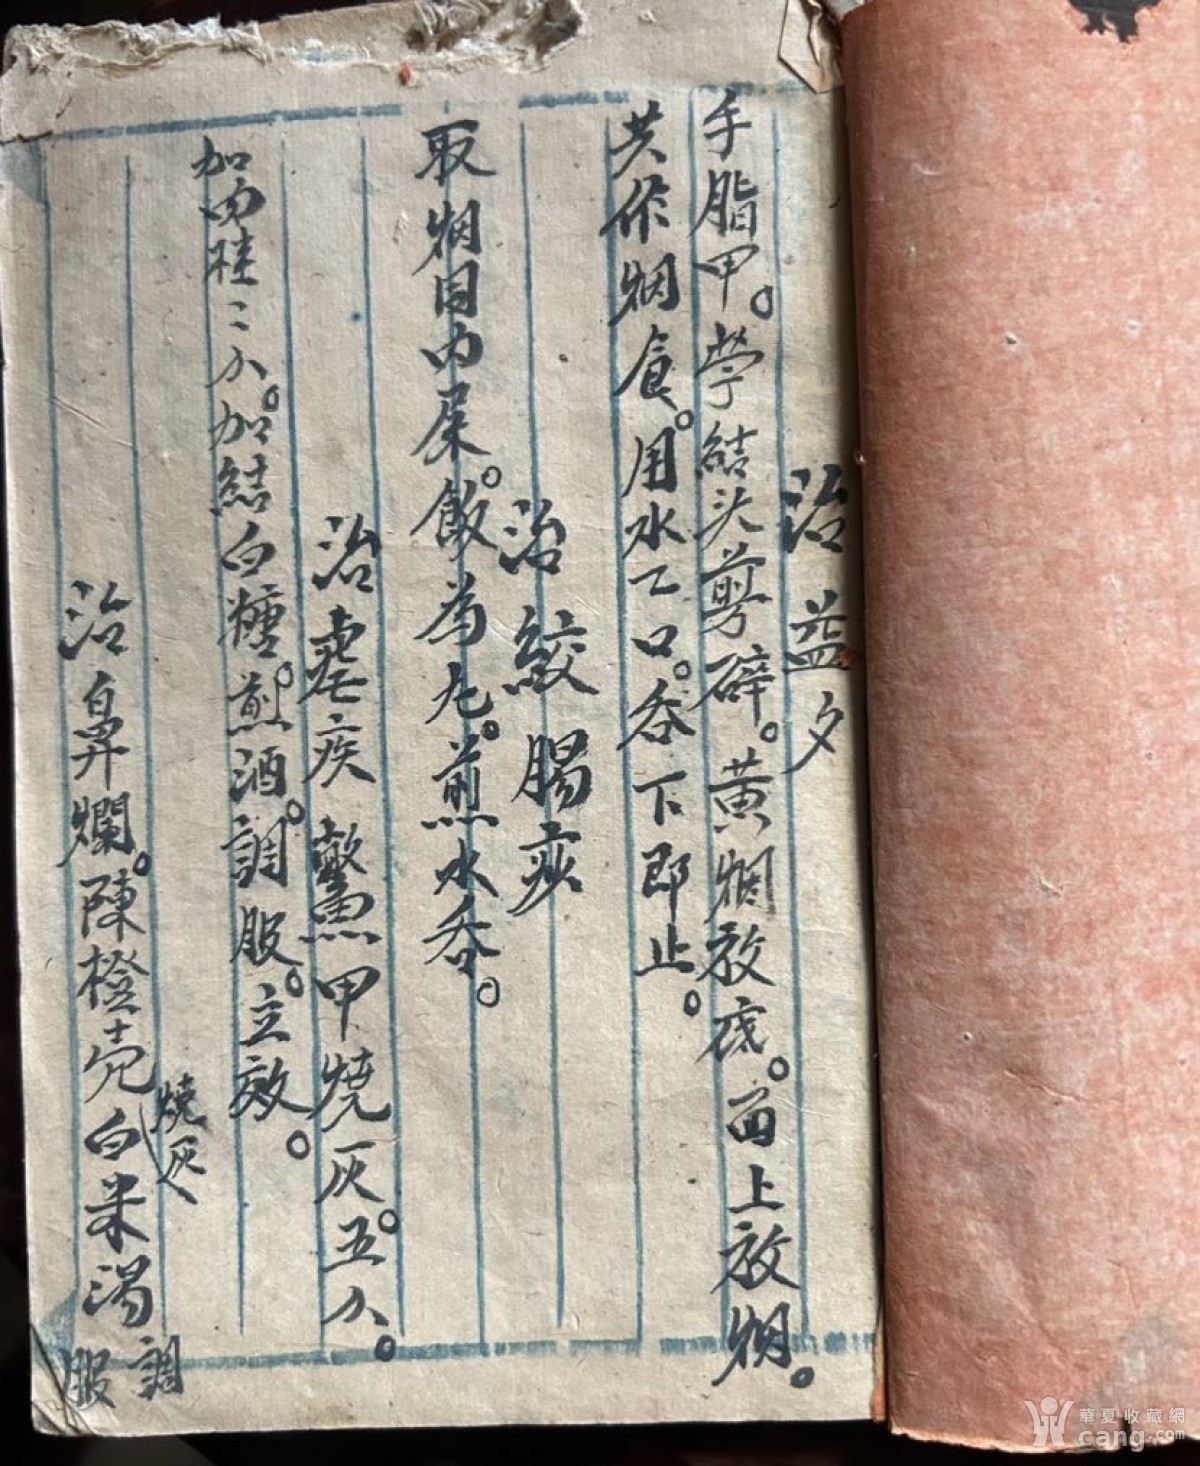 治益夕
手脂甲。學結头剪碎。黄烟放底。面上放烟。
共作烟食。用水乙口。吞下即止。
治絞腸痧
取烟同内屎。飯為丸。煎水吞。
治瘧疾 鱉甲燒灰。五分。
加肉桂二分。加結白糖。煎酒。調服。立效。
治鼻爛。陳橙壳燒灰白米湯調服
華夏收藏網
cang.com